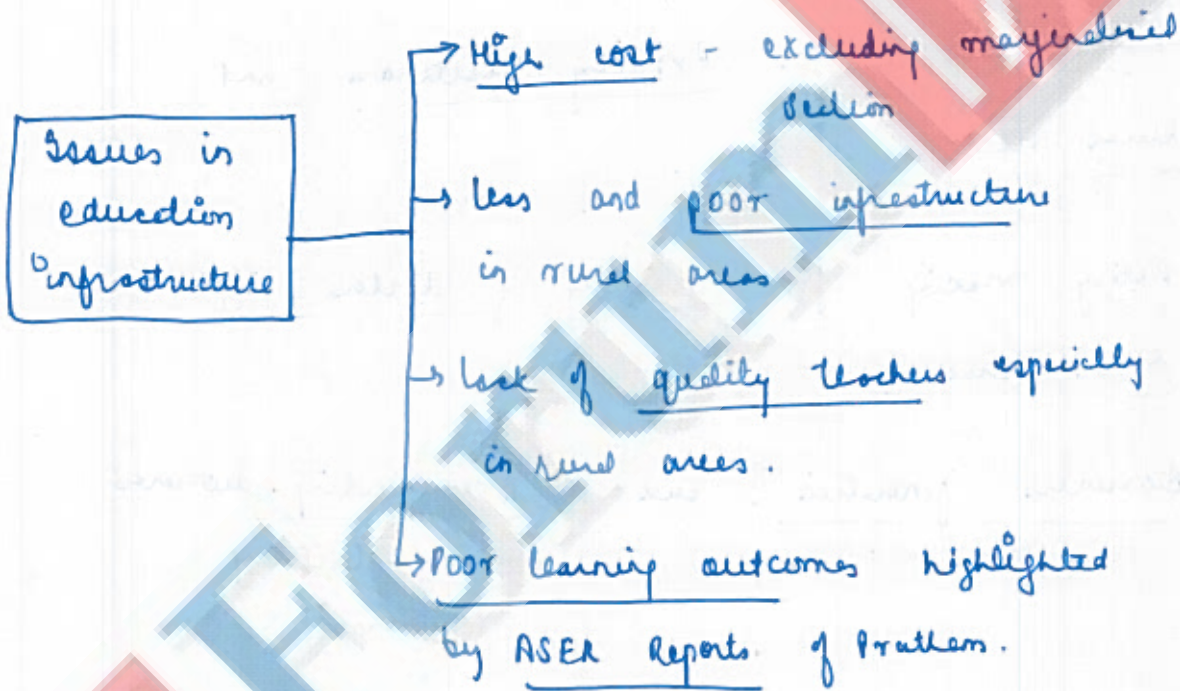 Issues in
education
infrastructure
High cost - excluding marginalised
section
Less and poor infrastructure
in rural areas
Lack of quality teachers especially
in rural areas.
Poor learning outcomes highlighted
by ASER Reports of Pratham.
Forum